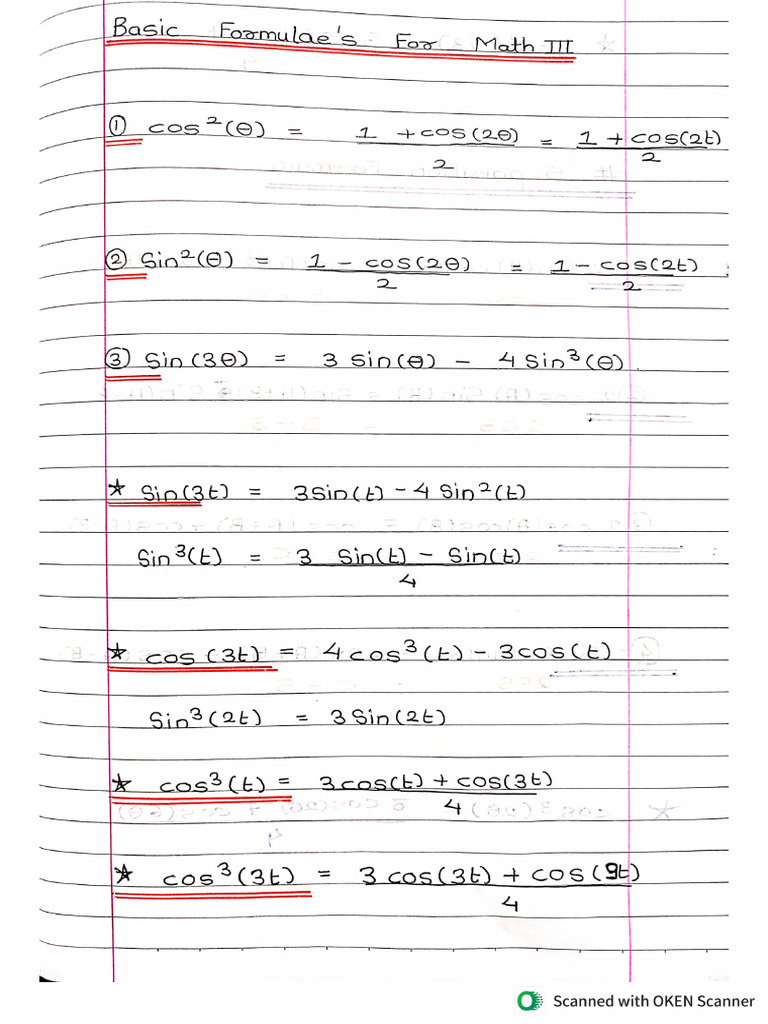 Basic Formulae's For Math III
① cos²(θ) = 1 + cos(2θ)/2 = 1 + cos(2t)/2
② Sin²(θ) = 1 - cos(2θ)/2 = 1 - cos(2t)/2
③ Sin(3θ) = 3 Sin(θ) - 4 Sin³(θ).
★ Sin(3t) = 3Sin(t) - 4 Sin²(t)
Sin³(t) = 3 Sin(t) - Sin(t)/4
★ cos(3t) = 4cos³(t) - 3cos(t)
Sin³(2t) = 3Sin(2t)
★ cos³(t) = 3cos(t) + cos(3t)/4
★ cos³(3t) = 3cos(3t) + cos(9t)/4
Scanned with OKEN Scanner